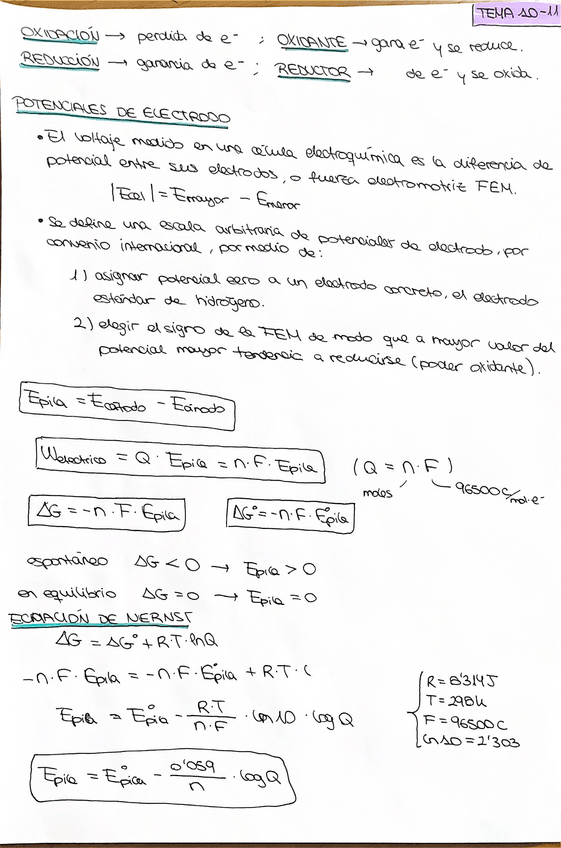 TEMA 10-11
OXIDACIÓN → perdida de e⁻ ; OXIDANTE → gana e⁻ y se reduce.
REDUCCIÓN → ganancia de e⁻ ; REDUCTOR → de e⁻ y se oxida.
POTENCIALES DE ELECTRODO
• El voltaje medido en una célula electroquímica es la diferencia de
potencial entre sus electrodos, o fuerza electromotriz FEM.
|Ecel| = Emayor - Emenor
• Se define una escala arbitraria de potenciales de electrodo, por
convenio internacional, por medio de:
1) asignar potencial cero a un electrodo concreto, el electrodo
estándar de hidrógeno.
2) elegir el signo de la FEM de modo que a mayor valor del
potencial mayor tendencia a reducirse (poder oxidante).
Epila = Ecátodo - Eánodo
Welectrico = Q · Epila = n · F · Epila (Q = n · F)
moles 96500 C/mol·e⁻
ΔG = -n · F · Epila ΔG° = -n · F · E°pila
espontáneo ΔG < 0 → Epila > 0
en equilibrio ΔG = 0 → Epila = 0
ECUACIÓN DE NERNST
ΔG = ΔG° + R·T·lnQ
-n·F·Epila = -n·F·E°pila + R·T·(
Epila = E°pila - R·T/n·F · Ln10 · logQ
Epila = E°pila - 0'059/n · logQ
R = 8'314J
T = 298k
F = 96500C
Ln 10 = 2'303